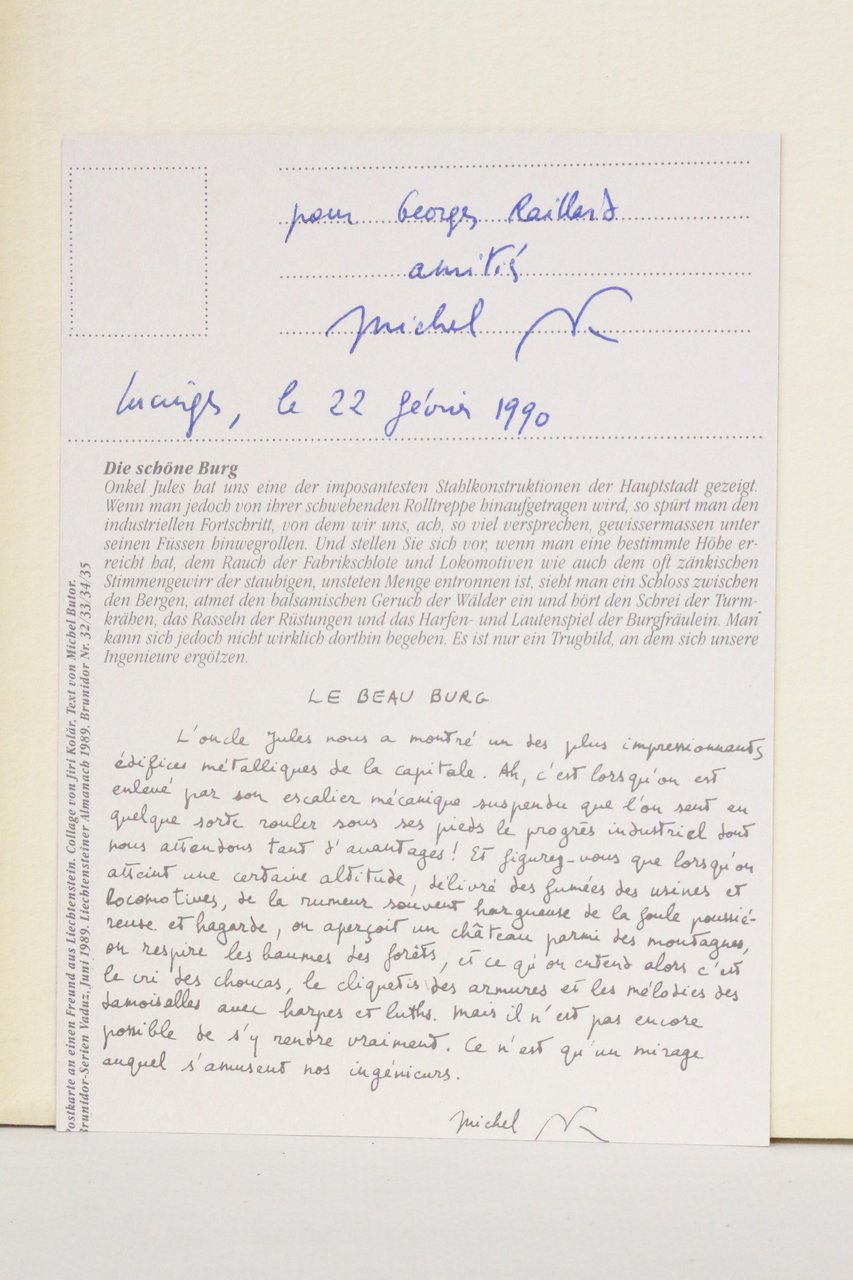 pour Georges Raillard
amitiés
Michel
Lucinges, le 22 février 1990
Die schöne Burg
Onkel Jules hat uns eine der imposantesten Stahlkonstruktionen der Hauptstadt gezeigt.
Wenn man jedoch von ihrer schwebenden Rolltreppe hinaufgetragen wird, so spürt man den
industriellen Fortschritt, von dem wir uns, ach, so viel versprechen, gewissermassen unter
seinen Füssen hinwegrollen. Und stellen Sie sich vor, wenn man eine bestimmte Höhe er-
reicht hat, dem Rauch der Fabrikschlote und Lokomotiven wie auch dem oft zänkischen
Stimmengewirr der staubigen, unsteten Menge entronnen ist, sieht man ein Schloss zwischen
den Bergen, atmet den balsamischen Geruch der Wälder ein und hört den Schrei der Turm-
krähen, das Rasseln der Rüstungen und das Harfen- und Lautenspiel der Burgfräulein. Man
kann sich jedoch nicht wirklich dorthin begeben. Es ist nur ein Trugbild, an dem sich unsere
Ingenieure ergötzen.
LE BEAU BURG
L'oncle Jules nous a montré un des plus impressionnants
édifices métalliques de la capitale. Ah, c'est lorsqu'on est
enlevé par son escalier mécanique suspendu que l'on sent en
quelque sorte rouler sous ses pieds le progrès industriel dont
nous attendons tant d'avantages! Et figurez-vous que lorsqu'on
atteint une certaine altitude, délivré des fumées des usines et
locomotives, de la rumeur souvent hargneuse de la foule poussié-
reuse et hagarde, on aperçoit un château parmi des montagnes,
on respire les baumes des forêts, et ce qu'on entend alors c'est
le cri des choucas, le cliquetis des armures et les mélodies des
damoiselles avec harpes et luths. Mais il n'est pas encore
possible de s'y rendre vraiment. Ce n'est qu'un mirage
auquel s'amusent nos ingénieurs.
Michel
Postkarte an einen Freund aus Liechtenstein. Collage von Jiri Kolár, Text von Michel Butor.
Brunidor-Serien Vaduz, Juni 1989. Liechtensteiner Almanach 1989, Brunidor Nr. 32/33/34/35